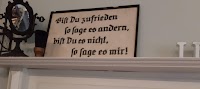 Bist Du zufrieden
so sage es andern,
bist Du es nicht,
so sage es mir!